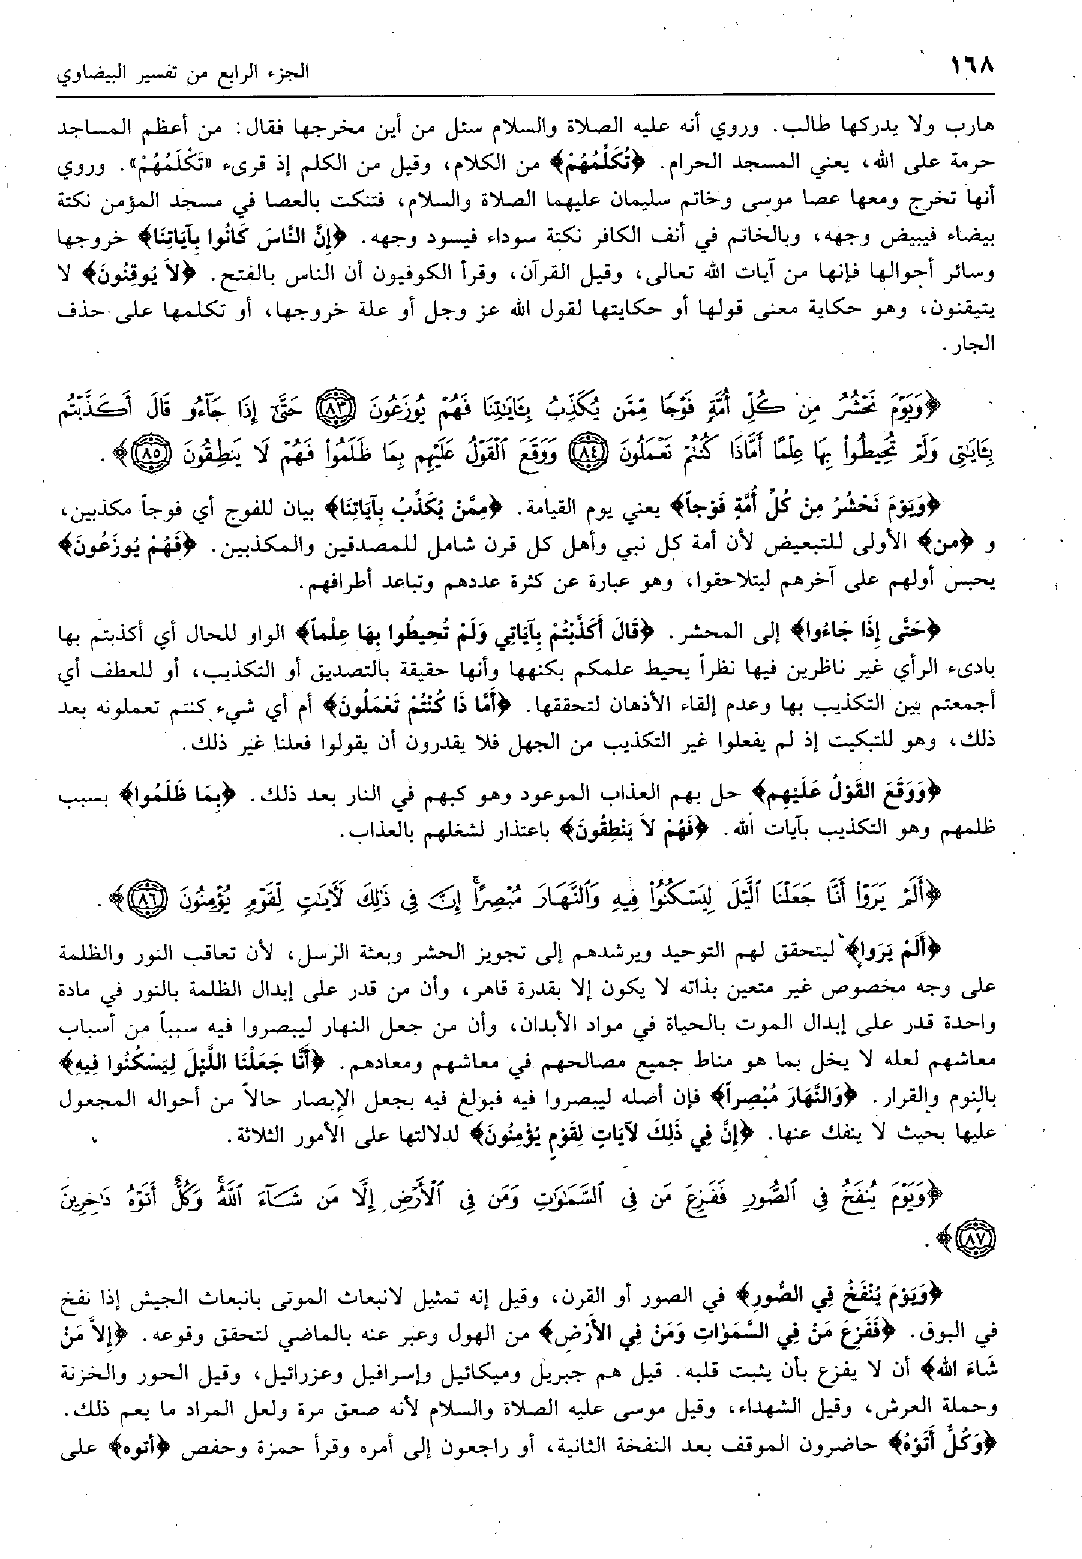 ١٦٨
الجزء الرابع من تفسير البيضاوي
هارب ولا يدركها طالب. وروي أنه عليه الصلاة والسلام سئل من أين مخرجها فقال: من أعظم المساجد
حرمة على الله، يعني المسجد الحرام. ﴿تُكَلِّمُهُمْ﴾ من الكلام، وقيل من الكلم إذ قرىء «تَكْلَمُهُمْ». وروي
أنها تخرج ومعها عصا موسى وخاتم سليمان عليهما الصلاة والسلام، فتنكت بالعصا في مسجد المؤمن نكتة
بيضاء فيبيض وجهه، وبالخاتم في أنف الكافر نكتة سوداء فيسود وجهه. ﴿إِنَّ النَّاسَ كَانُوا بِآيَاتِنَا﴾ خروجها
وسائر أحوالها فإنها من آيات الله تعالى، وقيل القرآن، وقرأ الكوفيون أن الناس بالفتح. ﴿لاَ يُوقِنُونَ﴾ لا
يتيقنون، وهو حكاية معنى قولها أو حكايتها لقول الله عز وجل أو علة خروجها، أو تكلمها على حذف
الجار.
﴿وَيَوْمَ نَحْشُرُ مِن كُلِّ أُمَّةٍ فَوْجًا مِّمَّن يُكَذِّبُ بِـَٔايَٰتِنَا فَهُمْ يُوزَعُونَ ٨٣ حَتَّىٰٓ إِذَا جَآءُو قَالَ أَكَذَّبْتُم
بِـَٔايَٰتِى وَلَمْ تُحِيطُوا۟ بِهَا عِلْمًا أَمَّاذَا كُنتُمْ تَعْمَلُونَ ٨٤ وَوَقَعَ ٱلْقَوْلُ عَلَيْهِم بِمَا ظَلَمُوا۟ فَهُمْ لَا يَنطِقُونَ ٨٥﴾.
﴿وَيَوْمَ نَحْشُرُ مِنْ كُلِّ أُمَّةٍ فَوْجاً﴾ يعني يوم القيامة. ﴿مِمَّنْ يُكَذِّبُ بِآيَاتِنَا﴾ بيان للفوج أي فوجاً مكذبين،
و ﴿من﴾ الأولى للتبعيض لأن أمة كل نبي وأهل كل قرن شامل للمصدقين والمكذبين. ﴿فَهُمْ يُوزَعُونَ﴾
يحبس أولهم على آخرهم ليتلاحقوا، وهو عبارة عن كثرة عددهم وتباعد أطرافهم.
﴿حَتَّى إِذَا جَاءُوا﴾ إلى المحشر. ﴿قَالَ أَكَذَّبْتُمْ بِآيَاتِي وَلَمْ تُحِيطُوا بِهَا عِلْماً﴾ الواو للحال أي أكذبتم بها
بادىء الرأي غير ناظرين فيها نظراً يحيط علمكم بكنهها وأنها حقيقة بالتصديق أو التكذيب، أو للعطف أي
أجمعتم بين التكذيب بها وعدم إلقاء الأذهان لتحققها. ﴿أَمَّا ذَا كُنْتُمْ تَعْمَلُونَ﴾ أم أي شيء كنتم تعملونه بعد
ذلك، وهو للتبكيت إذ لم يفعلوا غير التكذيب من الجهل فلا يقدرون أن يقولوا فعلنا غير ذلك.
﴿وَوَقَعَ القَوْلُ عَلَيْهِم﴾ حل بهم العذاب الموعود وهو كبهم في النار بعد ذلك. ﴿بِمَا ظَلَمُوا﴾ بسبب
ظلمهم وهو التكذيب بآيات الله. ﴿فَهُمْ لاَ يَنْطِقُونَ﴾ باعتذار لشغلهم بالعذاب.
﴿أَلَمْ يَرَوْا۟ أَنَّا جَعَلْنَا ٱلَّيْلَ لِيَسْكُنُوا۟ فِيهِ وَٱلنَّهَارَ مُبْصِرًا ۚ إِنَّ فِى ذَٰلِكَ لَـَٔايَٰتٍ لِّقَوْمٍ يُؤْمِنُونَ ٨٦﴾.
﴿أَلَمْ يَرَوا﴾ ليتحقق لهم التوحيد ويرشدهم إلى تجويز الحشر وبعثة الرسل، لأن تعاقب النور والظلمة
على وجه مخصوص غير متعين بذاته لا يكون إلا بقدرة قاهر، وأن من قدر على إبدال الظلمة بالنور في مادة
واحدة قدر على إبدال الموت بالحياة في مواد الأبدان، وأن من جعل النهار ليبصروا فيه سبباً من أسباب
معاشهم لعله لا يخل بما هو مناط جميع مصالحهم في معاشهم ومعادهم. ﴿أَنَّا جَعَلْنَا اللَّيْلَ لِيَسْكُنُوا فِيهِ﴾
بالنوم والقرار. ﴿وَالنَّهَارَ مُبْصِراً﴾ فإن أصله ليبصروا فيه فبولغ فيه بجعل الإبصار حالاً من أحواله المجعول
عليها بحيث لا ينفك عنها. ﴿إِنَّ فِي ذَلِكَ لآيَاتٍ لِقَوْمٍ يُؤْمِنُونَ﴾ لدلالتها على الأمور الثلاثة.
﴿وَيَوْمَ يُنفَخُ فِى ٱلصُّورِ فَفَزِعَ مَن فِى ٱلسَّمَٰوَٰتِ وَمَن فِى ٱلْأَرْضِ إِلَّا مَن شَآءَ ٱللَّهُ ۚ وَكُلٌّ أَتَوْهُ دَٰخِرِينَ
٨٧﴾.
﴿وَيَوْمَ يُنْفَخُ فِي الصُّورِ﴾ في الصور أو القرن، وقيل إنه تمثيل لانبعاث الموتى بانبعاث الجيش إذا نفخ
في البوق. ﴿فَفَزِعَ مَنْ فِي السَّمَوَاتِ وَمَنْ فِي الأَرْضِ﴾ من الهول وعبر عنه بالماضي لتحقق وقوعه. ﴿إِلاَّ مَنْ
شَاءَ اللهُ﴾ أن لا يفزع بأن يثبت قلبه. قيل هم جبريل وميكائيل وإسرافيل وعزرائيل، وقيل الحور والخزنة
وحملة العرش، وقيل الشهداء، وقيل موسى عليه الصلاة والسلام لأنه صعق مرة ولعل المراد ما يعم ذلك.
﴿وَكُلٌّ أَتَوْهُ﴾ حاضرون الموقف بعد النفخة الثانية، أو راجعون إلى أمره وقرأ حمزة وحفص ﴿أتوه﴾ على